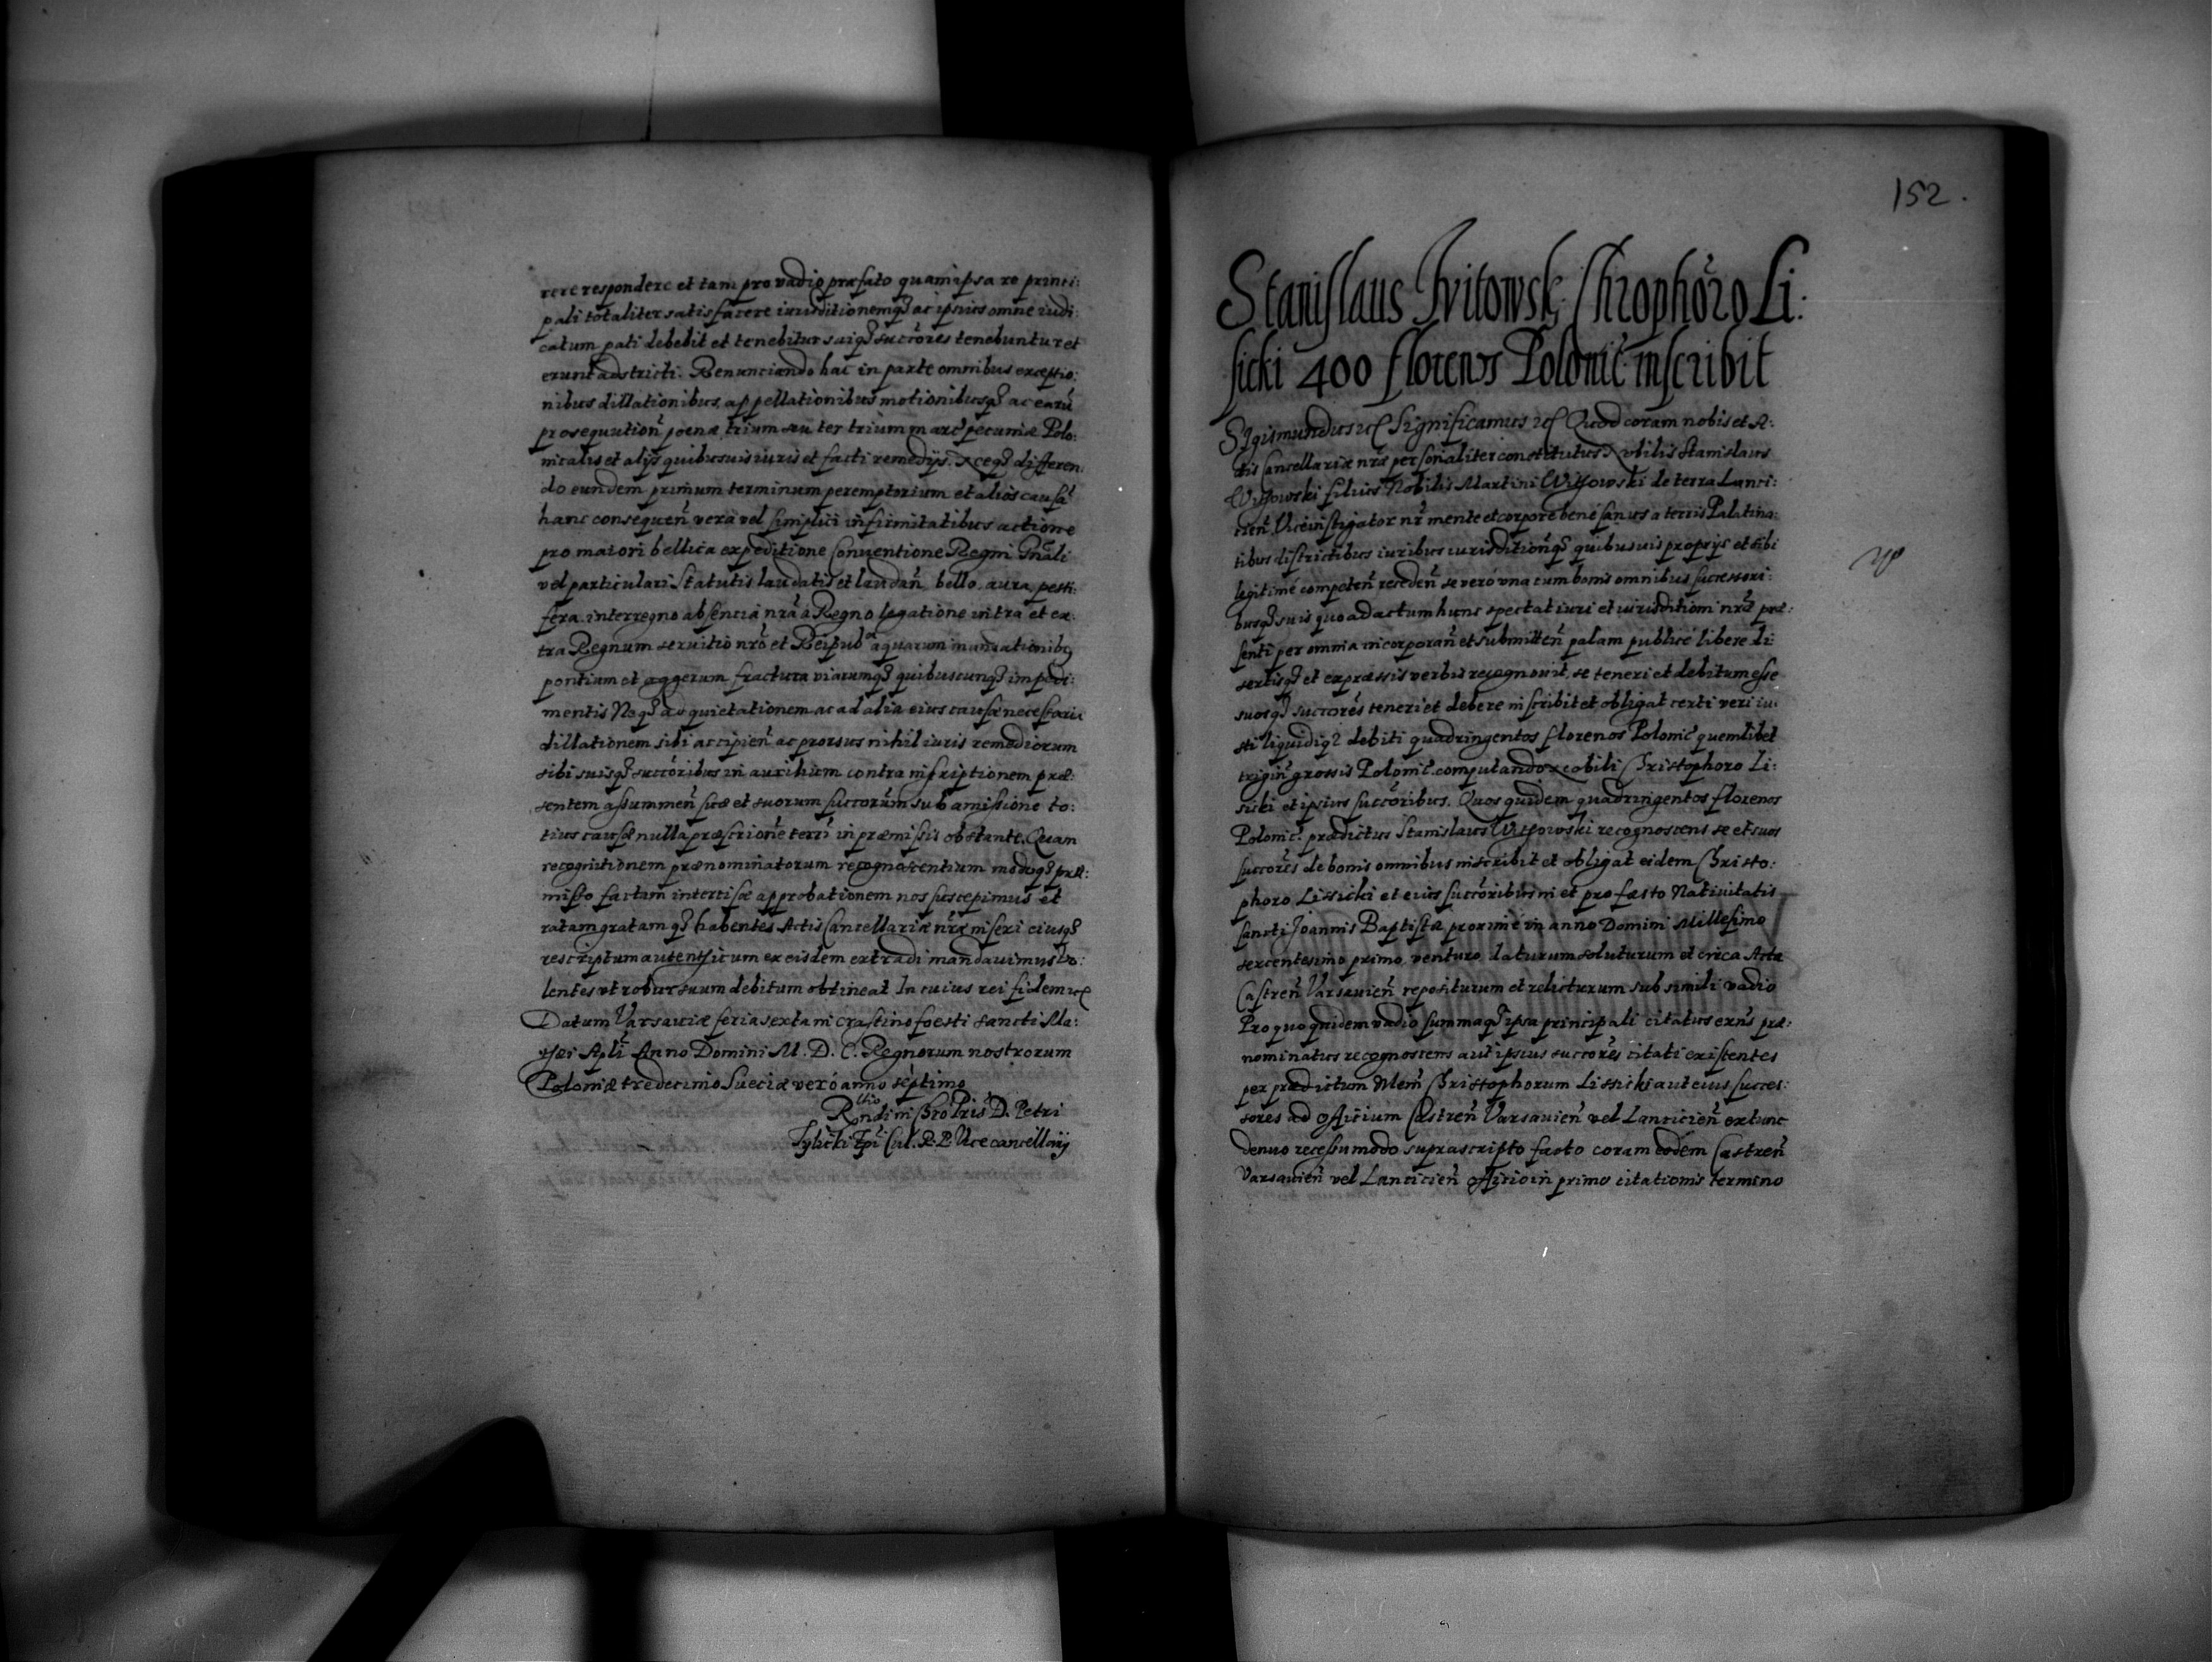 rere respondere et tam pro vadio præfato quam ipsa re princi:
pali totaliter satisfacere iurisditionemq₃ ac ipsius omne iudi:
catum pati debebit et tenebitur suiq₃ succōres tenebuntur et
erunt adstricti. Renunciando hac in parte omnibus exceptio:
nibus dillationibus, appellationibus motionibusq₃ ac earū
prosequution̄ poenæ trium seu ter trium marc̄ pecuniæ Polo:
nicalis et alijs quibusuis iuris et facti remedijs. Necq₃ differen:
do eundem primum terminum peremptorium et alios causā
hanc consequen̄ vera vel simplici infirmitatibus actione
pro maiori bellica expeditione Conuentione Regni Gn̄ali
vel particulari Statutis laudatis et laudan̄ bello, aura, pesti:
fera, interregno absencia nr̄a à Regno legatione intra et ex:
tra Regnum seruitio nr̄o et Reipub aquarum inundationib₉
pontium et aggerum fractura viarumq₃ quibuscunq₃ impedi:
mentis Neq₃ ad quietationem ac ad alia eius causæ necessaria
dillationem sibi accipien̄ ac prorsus nihil iuris remediorum
sibi suisq₃ succōribus in auxilium contra inscriptionem præ:
sentem assummen̄ suæ et suorum succorūm sub amissione to:
tius causæ nulla præscrione terr̄i in præmissis obstante. Quam
recognitionem prænominatorum recognoscentium modoq₃ præ:
misso factam intercisæ approbationem nos suscepimus et
ratam gratam q₃ habentes Actis Cancellariæ nr̄æ inseri eiusq₃
rescriptum autenticum ex eisdem extradi mandauimus Vo:
lentes vt robur suum debitum obtineat In cuius rei fidem etc
Datum Varsauiæ feria sexta in crastino foesti sancti Ma:
thei Apli Anno Domini M. D. C. Regnorum nostrorum
Poloniæ tredecimo Sueciæ veró anno séptimo
R̄ndi in Chr̄o Pris D. Petri
Tylicki Epi Cul. R. P. Vicecancellarij
152.
Stanislaus Witowski Chrophōro Li:
sicki 400 florenos Polonic̄ inscribit
Sigismundus etc Significamus etc Quod coram nobis et A:
ctis Cancellariæ nr̄æ personaliter constitutus Nobilis Stanislaus
Wittowski filius Nobilis Martini Wittowski de terra Lanci:
cien̄ Viceinstigator nr̄ mente et corpore bené sanus a terris Palatina:
tibus districtibus iuribus iurisdition̄q₃ quibusuis proprijs et sibi
legitimé competen̄ receden̄ se veró vna cum bonis omnibus successori:
busq₃ suis quo ad actum hunc spectat iuri et iurisditioni nr̄æ præ:
senti per omnia incorporan̄ et submitten̄ palam publicé libere di:
sertisq₃ et expræssis verbis recognouit, se teneri et debitum esse
suosq₃ succōres teneri et debere inscribit et obligat certi veri iu:
sti liquidiq₃ debiti quadringentos florenos Polonic̄ quemlibet
trigin̄ grossis Polonic̄. computando Nobili Christophoro Li:
sicki et ipsius succōribus. Quos quidem quadringentos florenos
Polonic̄. prædictus Stanislaus Wittowski recognoscens se et suos
succōres de bonis omnibus inscribit et obligat eidem Christo:
phoro Lissicki et eius succōribus in et pro foesto Natiuitatis
sancti Joannis Baptistæ proximé in anno Domini Millesimo
sexcentesimo primo venturo daturum soluturum et circa Acta
Castren̄ Varsauien̄ repositurum et relicturum sub simili vadio
Pro quo quidem vadio summaq₃ ipsa principali citatus exn̄s præ:
nominatus recognoscens aut ipsius succōres citati existentes
per prædictum Nlem̄ Christophorum Lissicki aut eius succes:
sores ad officium Castren̄ Varsauien̄ vel Lancicien̄ extunc
denuo recessu modo suprascripto facto coram eodem Castren̄
Varsauien̄ vel Lancicien̄ officio in primo citationis termino